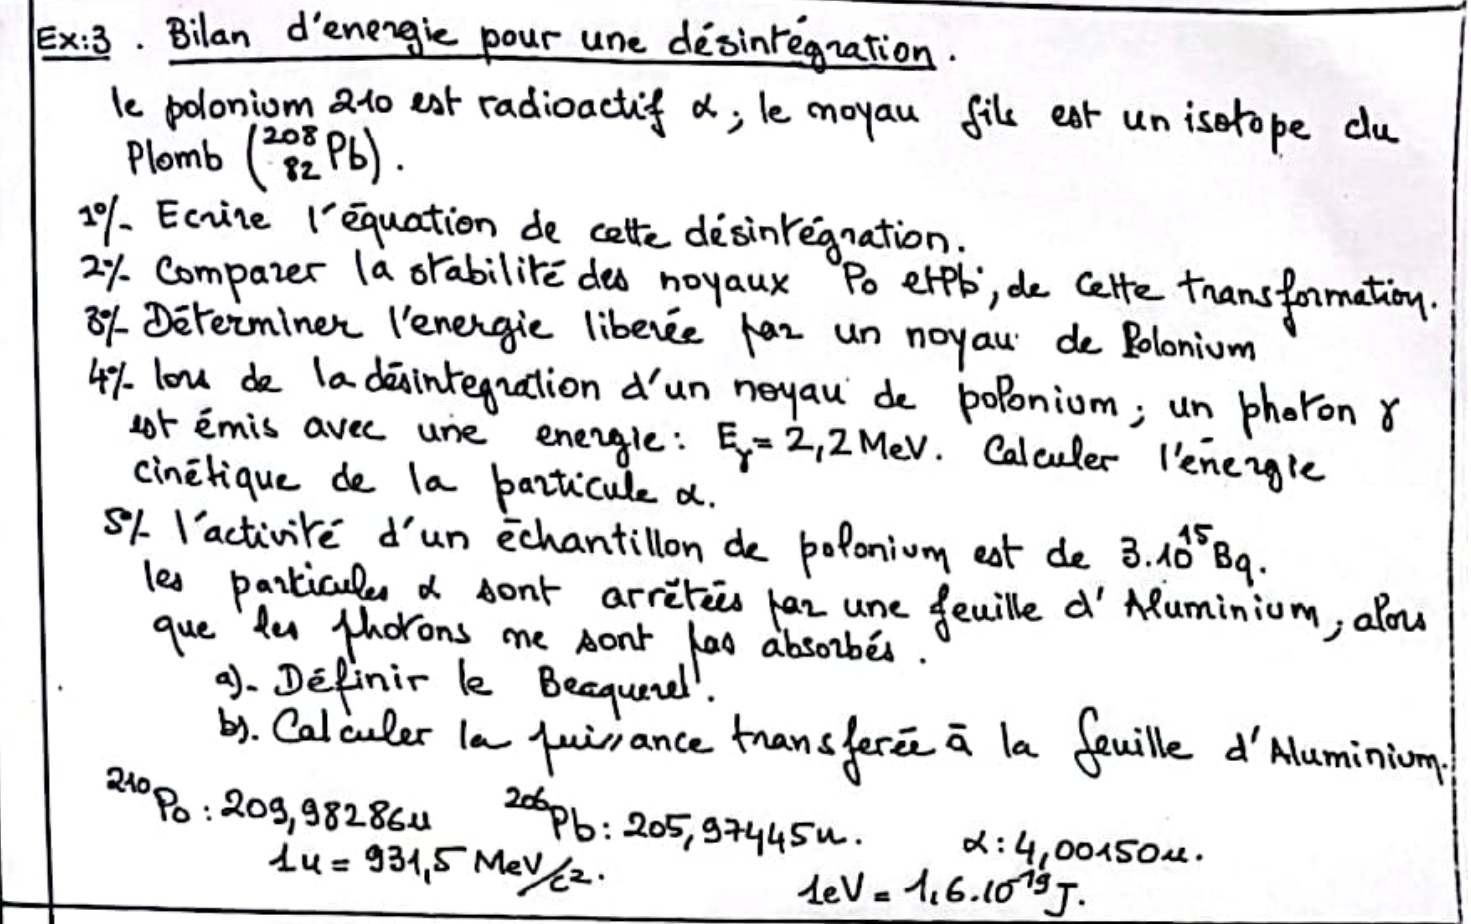 Ex:3. Bilan d'energie pour une désintégration.
le polonium 210 est radioactif α; le noyau fils est un isotope du
Plomb (²⁰⁸₈₂Pb).
1°/- Ecrire l'équation de cette désintégration.
2°/- Comparer la stabilité des noyaux Po et Pb, de cette transformation.
3°/- Déterminer l'energie liberée par un noyau de Polonium
4°/- lors de la désintegration d'un noyau de polonium; un photon γ
est émis avec une energie: Eγ = 2,2 MeV. Calculer l'énergie
cinétique de la particule α.
5°/- l'activité d'un échantillon de polonium est de 3.10¹⁵ Bq.
les particules α sont arrêtées par une feuille d'Aluminium, alors
que les photons ne sont pas absorbés.
a)- Définir le Becquerel.
b)- Calculer la puissance transferée à la feuille d'Aluminium.
²¹⁰Po : 209,98286u ²⁰⁶Pb : 205,97445u. α : 4,00150u.
1u = 931,5 MeV/c². 1eV = 1,6.10⁻¹⁹J.